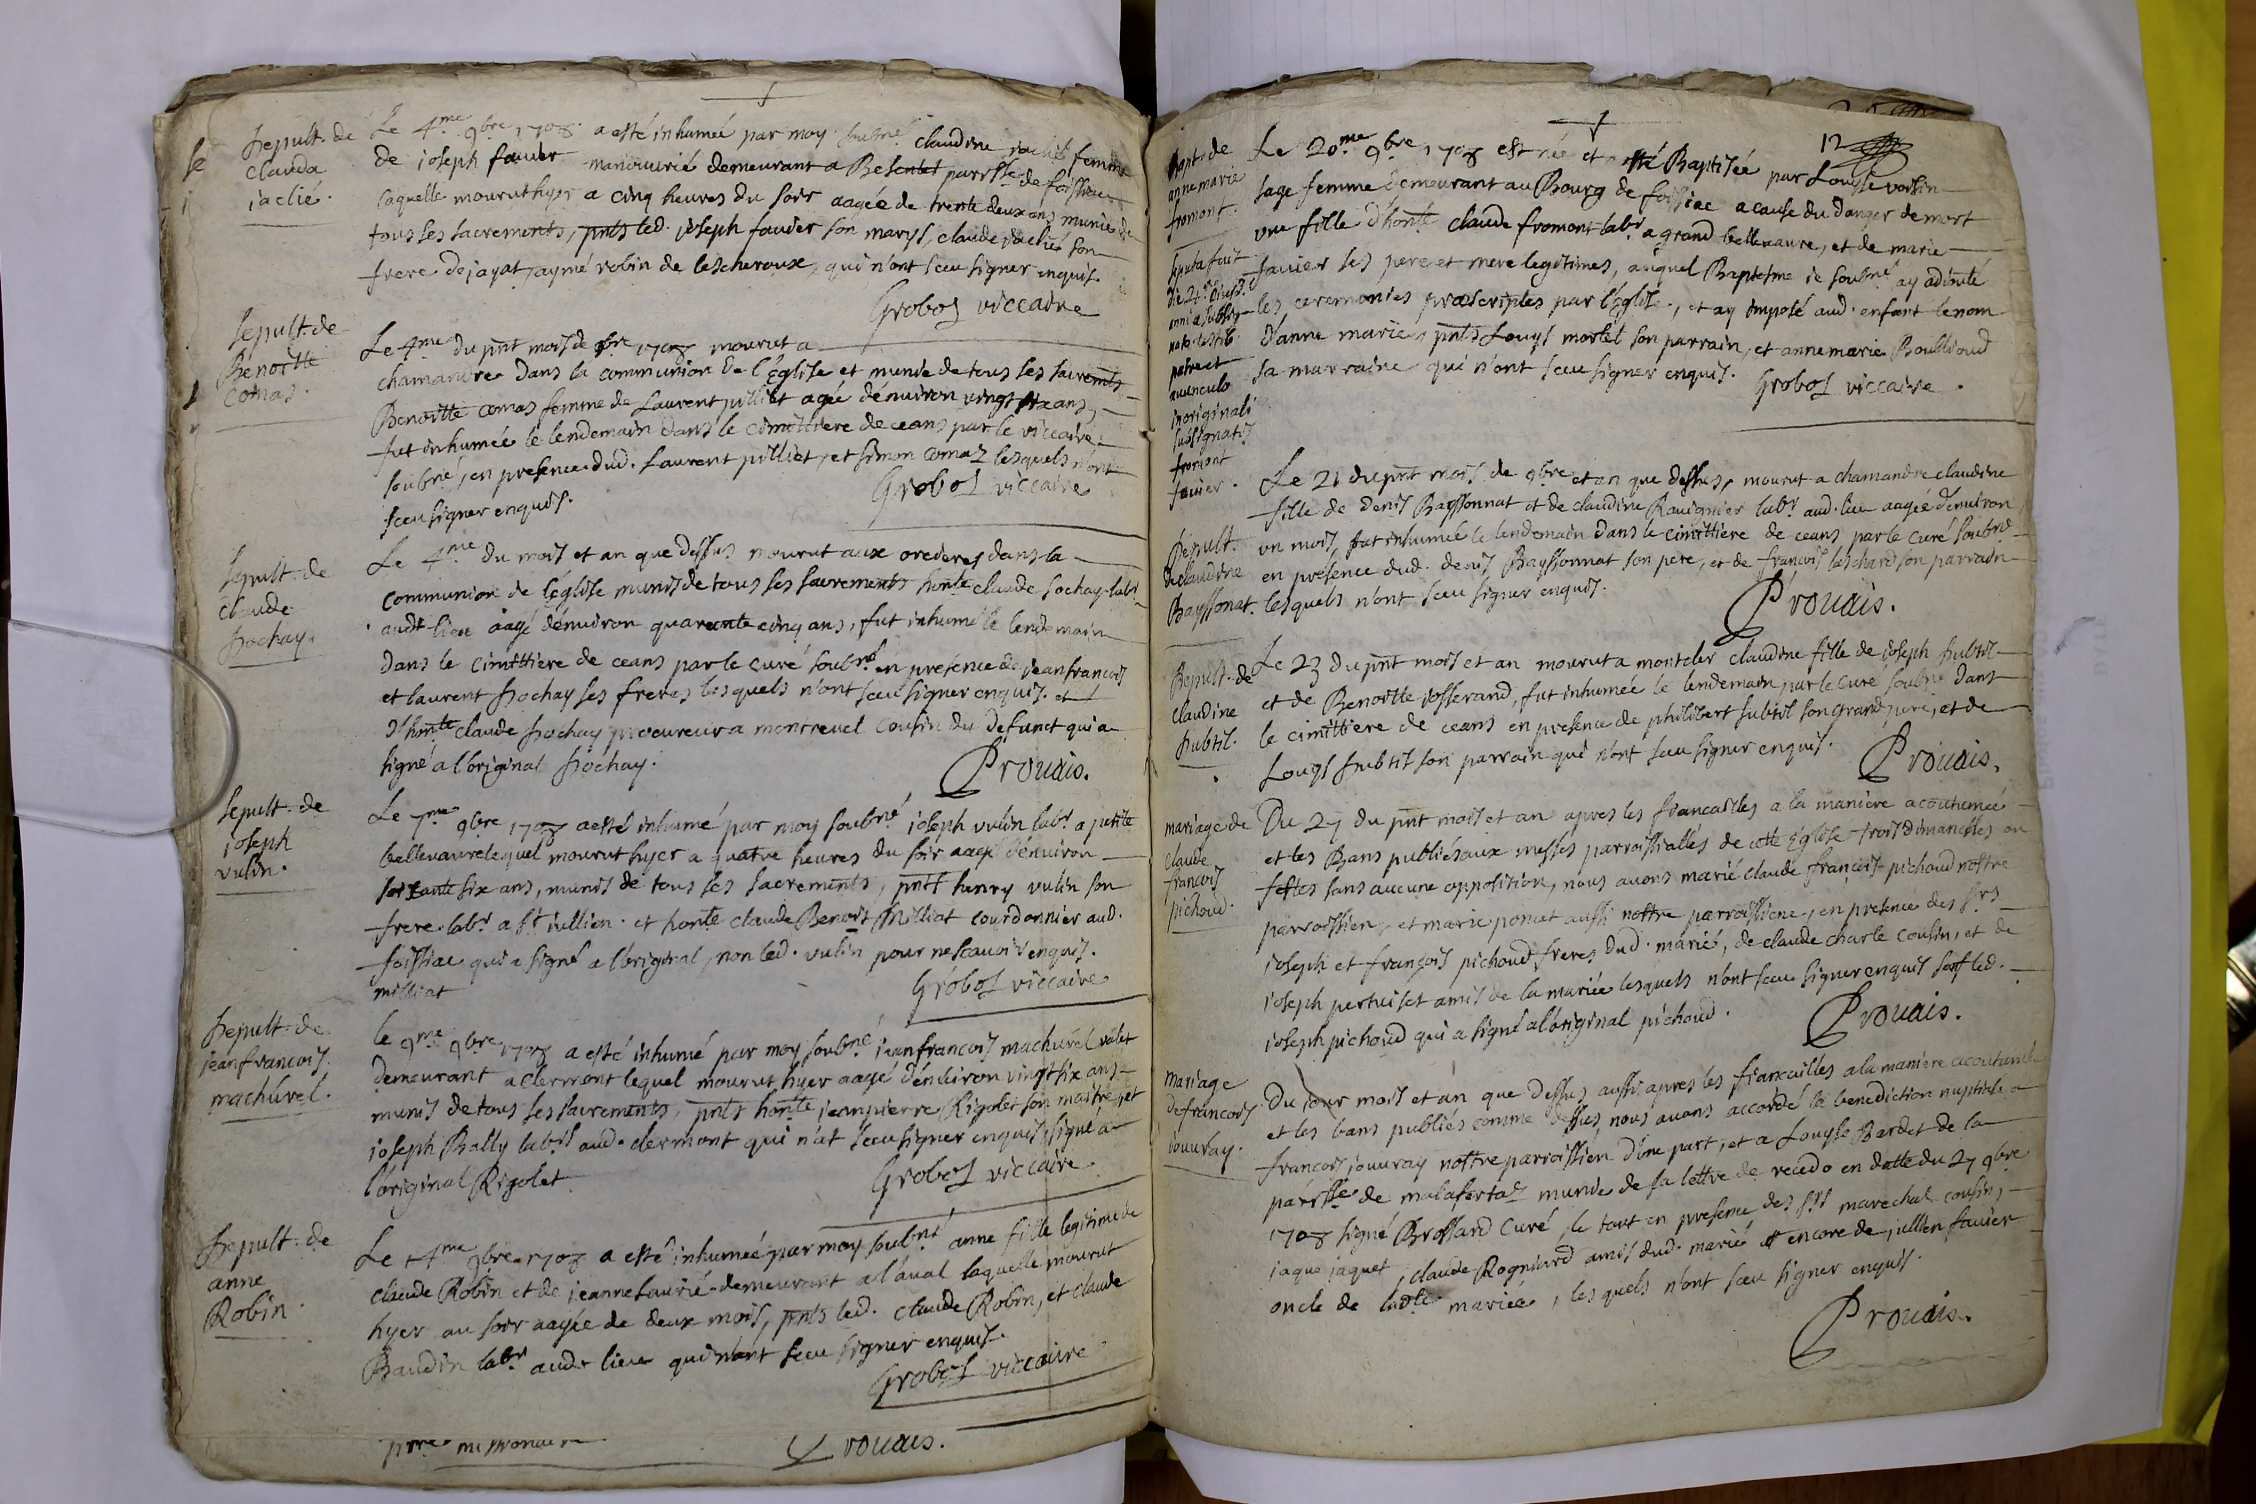 Sepult. de
Clauda
iaclié.
Le 4me 9bre 1708 a esté inhumée par moy soubné claudine iaclié femme
de ioseph favier manouvrié demeurant a parrsse de foissiac
laquelle mourut hyer a cinq heures du soir aagée de trente deux ans munie de
tous ses sacrements, pnts led. ioseph favier son marys, claude iaclié son
frere de jayat, aymé robin de lescheroux, qui n'ont sceu signer enquis.
Grobos viccaire
Sepult. de
Benoitte
Comas.
Le 4me du pnt mois de 9bre 1708 mourut a
chamandre dans la communion de l'Église et munie de tous ses sacremts
Benoitte comas femme de Laurent pilliet agé d'environ vingt ans,
fut inhumée le lendemain dans le cimittiere de ceans par le viccaire
soubné, en presence dud. Laurent pilliet, et simon comaz lesquels n'ont
sceu signer enquis.
Grobos viccaire
Sepult. de
claude
sochay.
Le 4me du mois et an que dessus mourut aux orcieres dans la
communion de l'église munis de tous ses sacrements honte claude sochay labr
audt lieu aagé d'environ quarante cinq ans, fut inhumé le lendemain
dans le cimittiere de ceans par le curé soubné en presence de jeanfrancois
et laurent sochay ses freres lesquels n'ont sceu signer enquis. et
d'honte claude sochay procureur a montrevel cousin du defunct qui a
signé a l'original sochay.
Prouais.
Sepult. de
ioseph
vulin.
Le 7me 9bre 1708 a esté inhumé par moy soubné ioseph vulin labr a petite
bellevavre lequel mourut hyer a quatre heures du soir aagé d'environ
soixante six ans, munis de tous ses sacrements, pnts henry vulin son
frere labr a st iullien. et honte claude Benoit Milliat courdonnier aud.
foissiac qui a signé a l'original, non led. vulin pour ne scavoir enquis.
milliat
Grobos viccaire
Sepult. de
jeanfrancois
machúrel.
le 9me 9bre 1708 a esté inhumé par moy soubné ieanfrancois machúrel valet
demeurant a clermont lequel mourut hyer aagé d'environ vingt six ans
munis de tous ses sacrements, pnts honte jeanpierre Rigolet son maitre, et
ioseph Bally labrs aud. clermont qui n'at sceu signer enquis, signé a
l'original Rigolet
Grobos viccaire
Sepult. de
anne
Robin.
Le 14me 9bre 1708 a esté inhumée par moy soubné anne fille legitime de
claude Robin et de jeanne Saurié demeurant a l'aval laquelle mourut
hyer au soir aagée de deux mois, pnts led. claude Robin, et claude
Baudin labr aud. lieu qui n'ont sceu signer enquis.
Grobos viccaire
prre missionaire
Prouais.
12
Bapt. de
anne marie
fromont.
patre et
avunculo
in originali
subsignatis
fromont
favier.
Le 20me 9bre 1708 est née et a esté Baptisée par Louyse voisin
sage femme demeurant au Bourg de foissiac a cause du danger de mort
une fille d'honte claude fromont labr a grand bellevavre, et de marie
favier ses pere et mere legitimes, auquel Baptesme ie soubné ay adiouté
les ceremonies præscriptes par l'Église, et ay imposé aud. enfant le nom
d'anne marie, pnts Louys mortel son parrain, et anne marie Boublioud
sa marraine qui n'ont sceu signer enquis.
Grobos viccaire.
Sepult.
de claudine
Bayssonat.
Le 21 du pnt mois de 9bre et an que dessus, mourut a chamandre claudine
fille de denis Bayssonnat et de claudine Ravignier labr aud. lieu aagée d'environ
un mois, fut inhumée le lendemain dans le cimittiere de ceans par le curé soubné
en présence dud. denis Bayssonnat son pere, et de francois laschard son parrain
lesquels n'ont sceu signer enquis.
Prouais.
Sepult. de
claudine
subtil.
Le 23 du pnt mois et an mourut a montcler claudine fille de ioseph subtil
et de Benoitte iosserand, fut inhumée le lendemain par le curé soubné dans
le cimittiere de ceans en presence de philibert subtil son grand pere, et de
Louys subtil son parrain qui n'ont sceu signer enquis.
Prouais.
mariage de
claude
françois
pichoud.
Du 27 du pnt mois et an apres les fiancailles a la maniere acoutumée
et les Bans publiés aux messes parroissialles de cette Église trois dimanches ou
festes sans aucune opposition, nous avons marié claude françois pichoud nostre
parroissien, et marie poncet aussi nostre parroissiene, en presence des srs
ioseph et françois pichoud freres dud. marié, de claude charle cousin, et de
ioseph pertuiset amis de la mariée lesquels n'ont sceu signer enquis sauf led.
ioseph pichoud qui a signé a l'original pichoud.
Prouais.
Mariage
de francois
iouvray.
Du jour mois et an que dessus aussi apres les fiancailles a la maniere acoutumée
et les bans publiés comme dessus, nous avons accordé la benediction nuptiale a
francois iouvray nostre parroissien d'une part, et a Louyse Bardet de la
parrsse de malafertaz munie de sa lettre de recedo en datte du 27 9bre
1708 signé Brossard curé, le tout en presence des srs marechal cousin,
iaque iaquet, claude Rogniard amis dud. marié et encore de jullien favier
oncle de ladte mariée, lesquels n'ont sceu signer enquis.
Prouais.